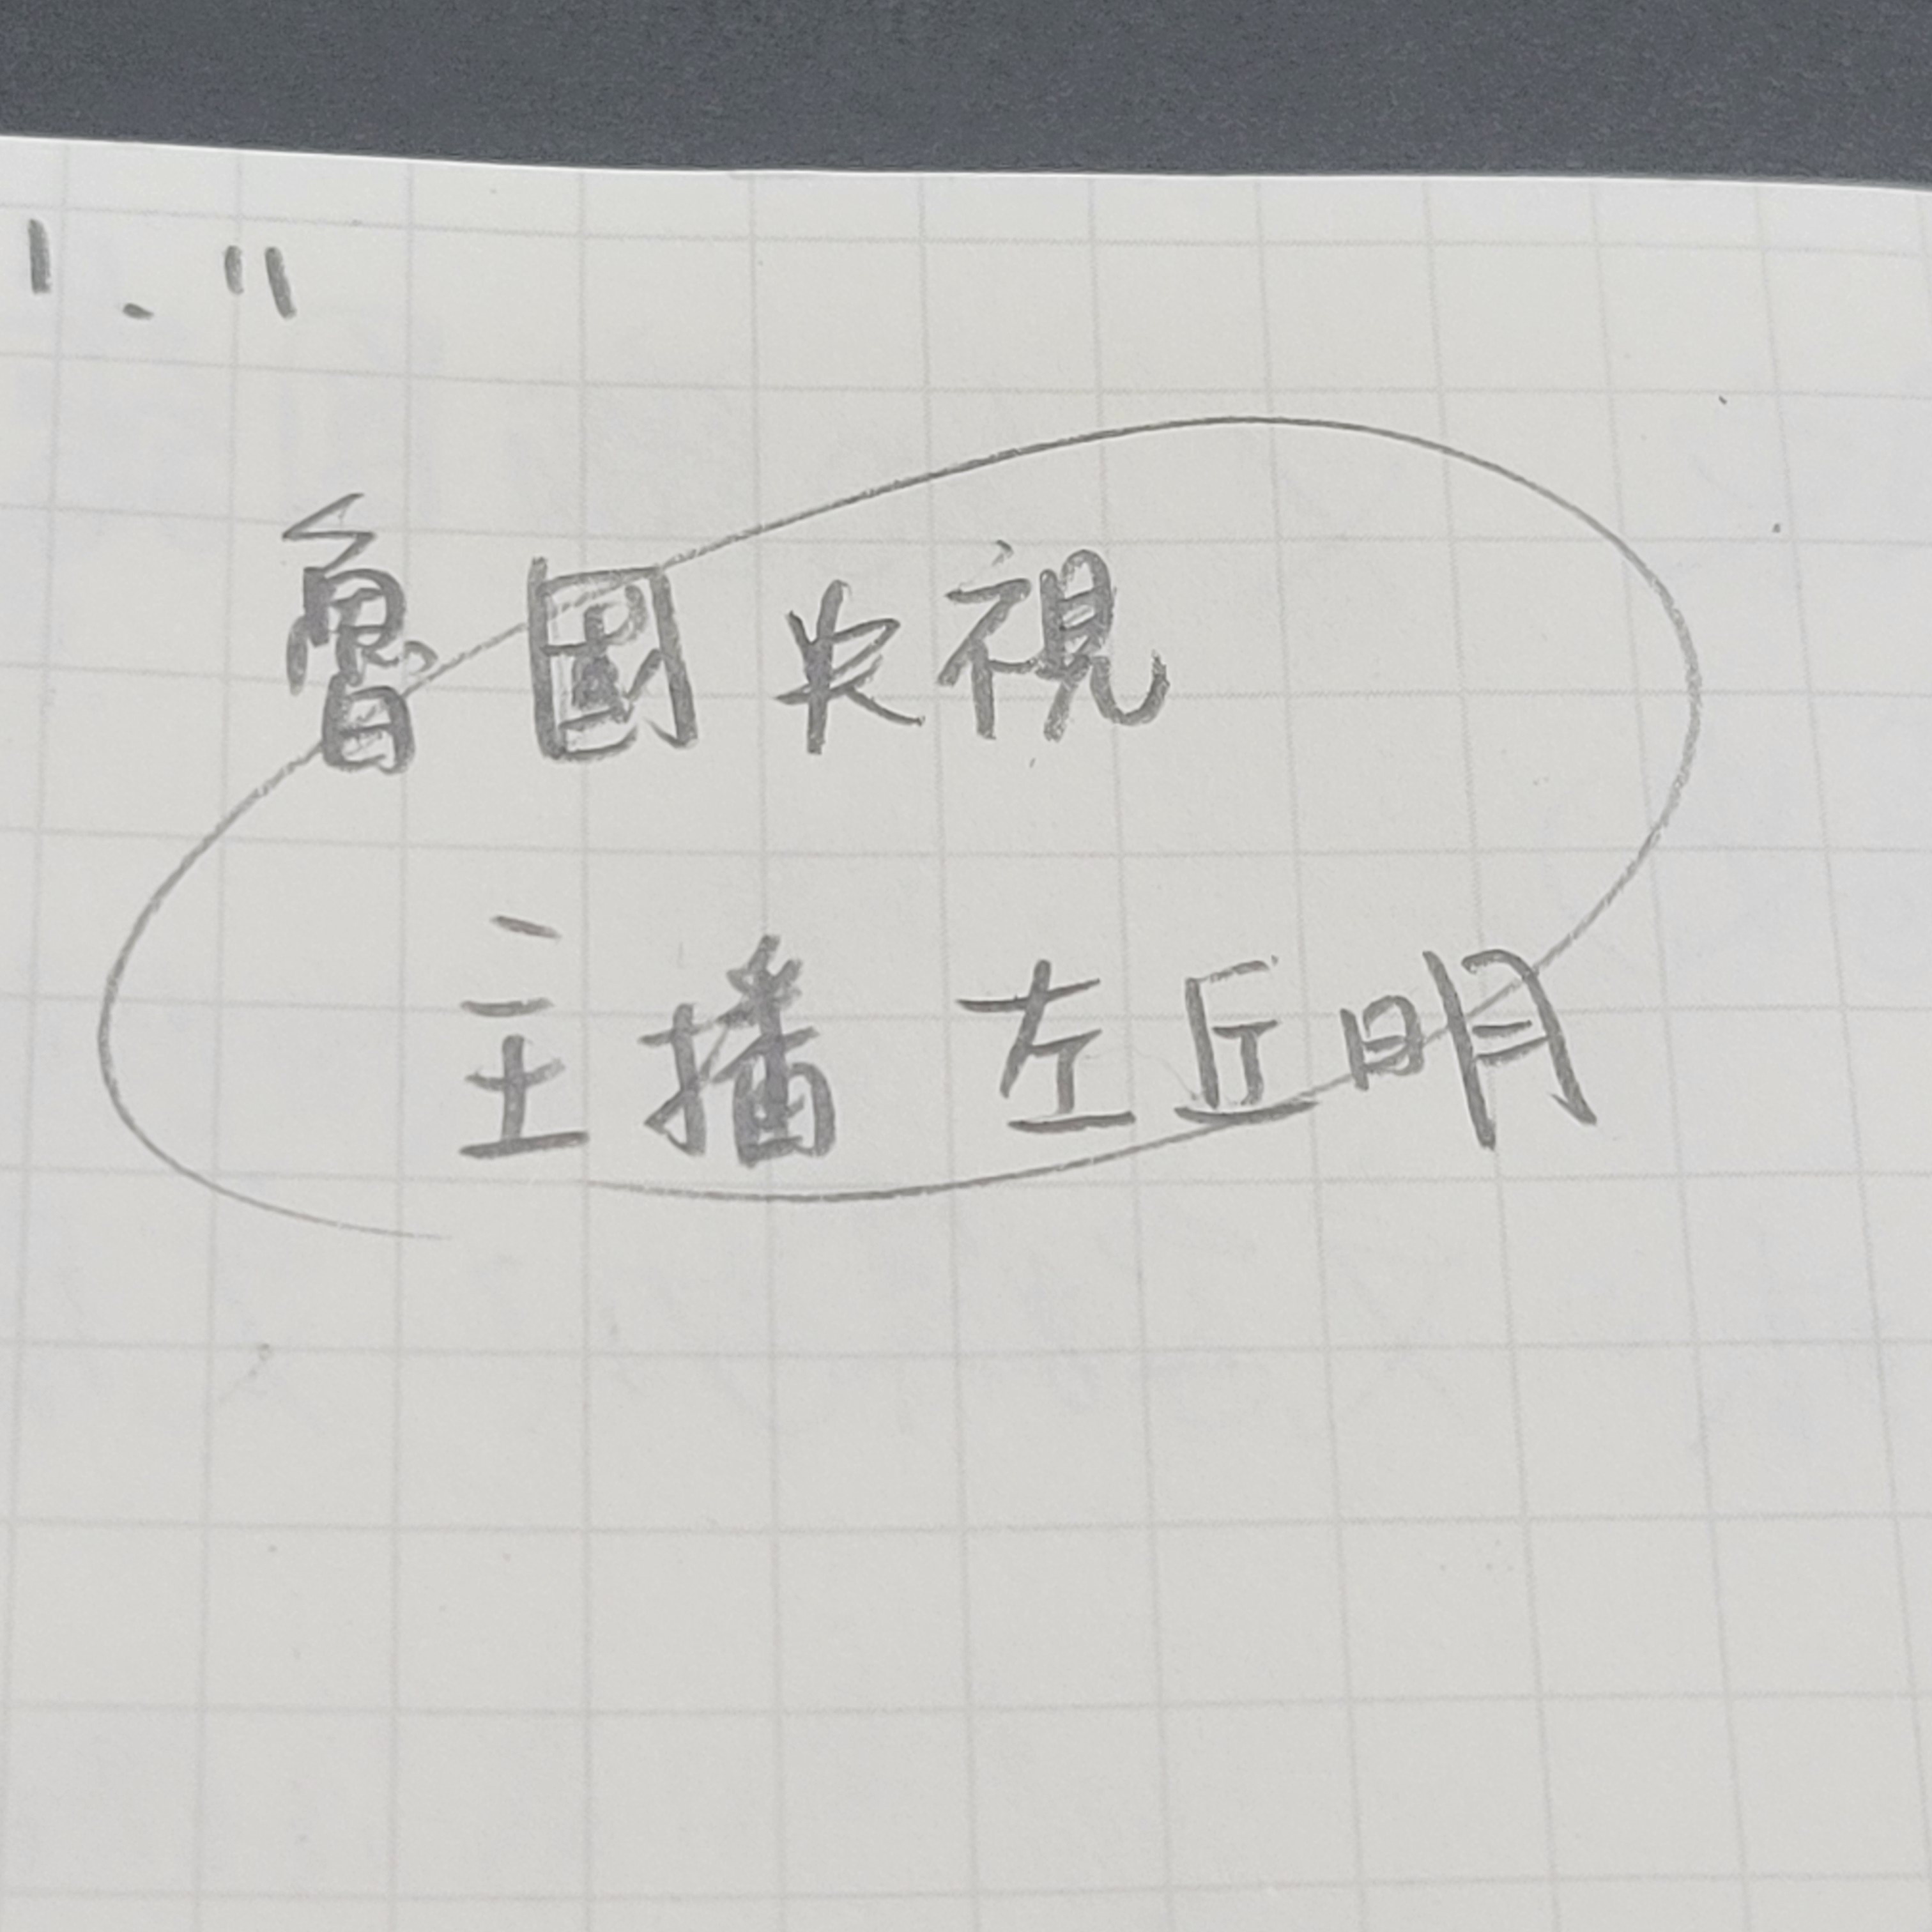 1.11
魯國央視
主播 左丘明